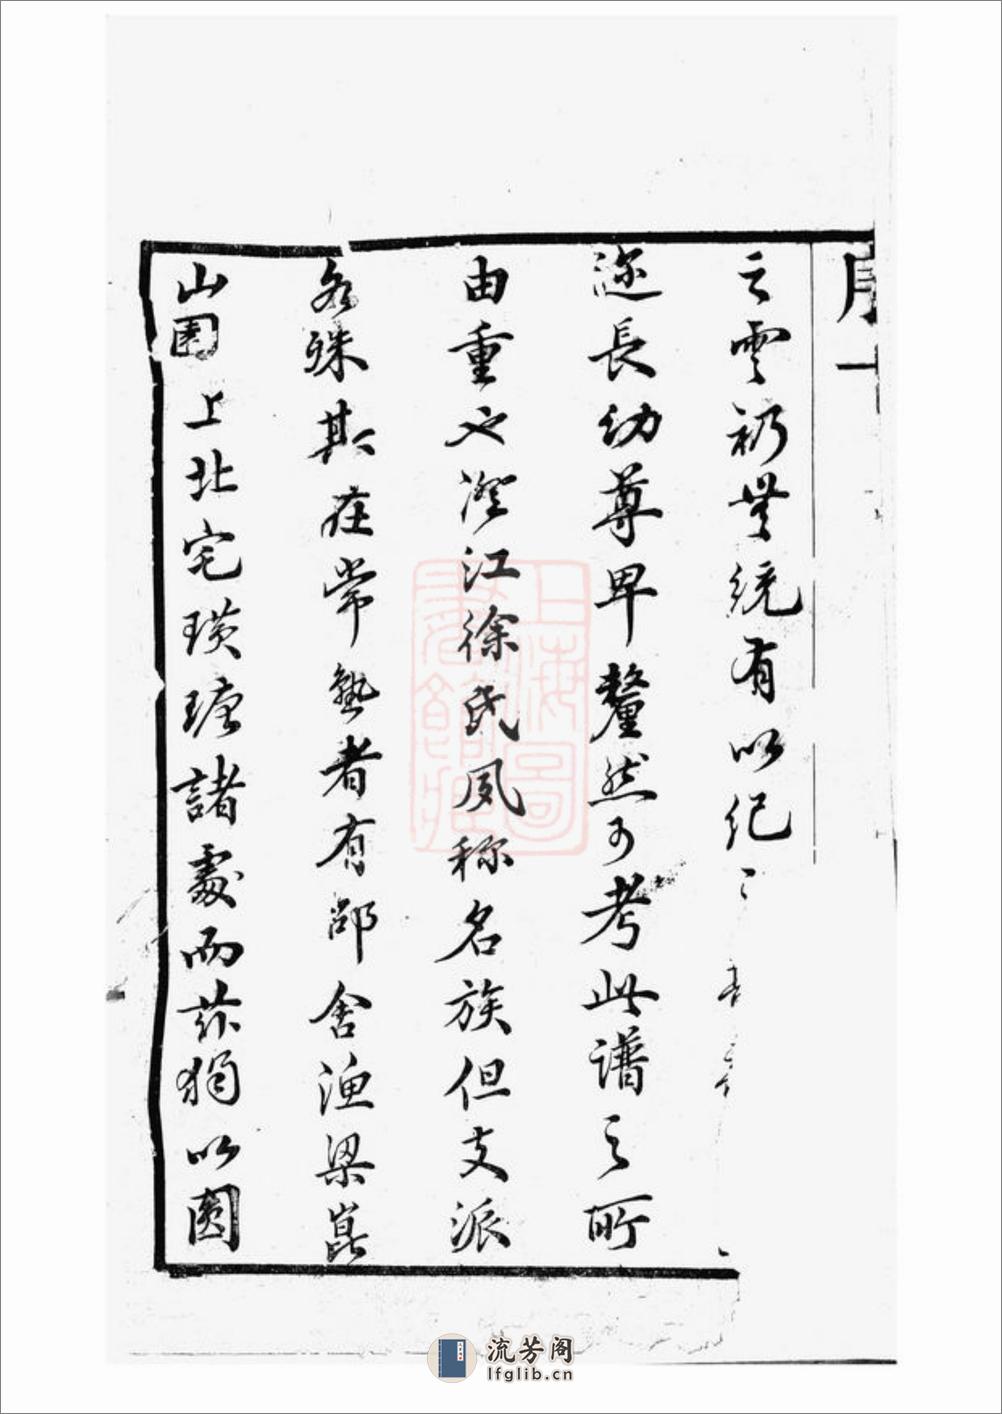 序一
之雲礽無統有以紀
迩長幼尊卑釐然可考此譜之所
由重也澄江徐氏夙称名族但支派
各殊其在常熟者有邵舍漁梁崑
山圕上北宅璜瑭諸處而茲獨以園
上海圖書館藏
流芳阁
lfglib.cn